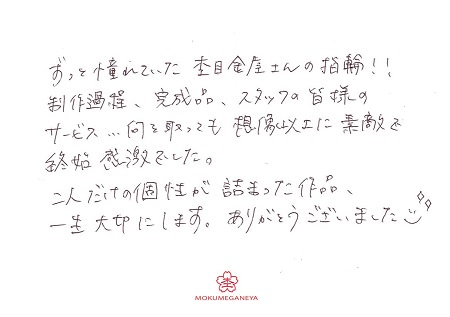 ずっと憧れていた 杢目金屋さんの指輪!!
制作過程、完成品、スタッフの皆様の
サービス…何を取っても想像以上に素敵で
終始感激でした。
二人だけの個性が詰まった作品、
一生大切にします。ありがとうございました
杢
MOKUMEGANEYA